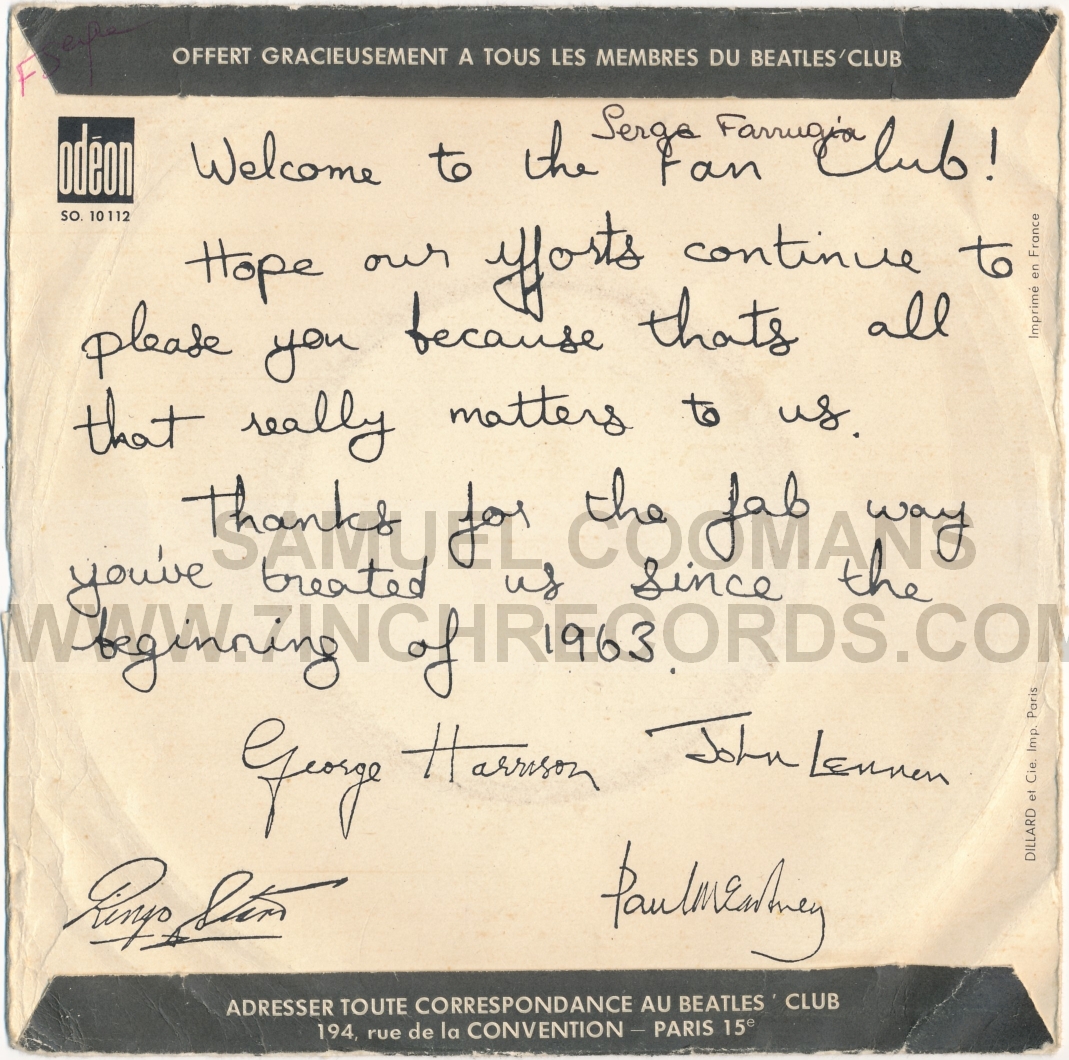 F Serge
OFFERT GRACIEUSEMENT A TOUS LES MEMBRES DU BEATLES'CLUB
odéon
SO. 10112
Serge Farrugia
Welcome to the Fan Club!
Hope our efforts continue to
please you because thats all
that really matters to us.
Thanks for the fab way
you've treated us since the
beginning of 1963.
George Harrison
John Lennon
Ringo Starr
Paul McCartney
Imprimé en France
DILLARD et Cie. Imp. Paris
ADRESSER TOUTE CORRESPONDANCE AU BEATLES ' CLUB
194, rue de la CONVENTION — PARIS 15e
SAMUEL COOMANS
WWW.7INCHRECORDS.COM